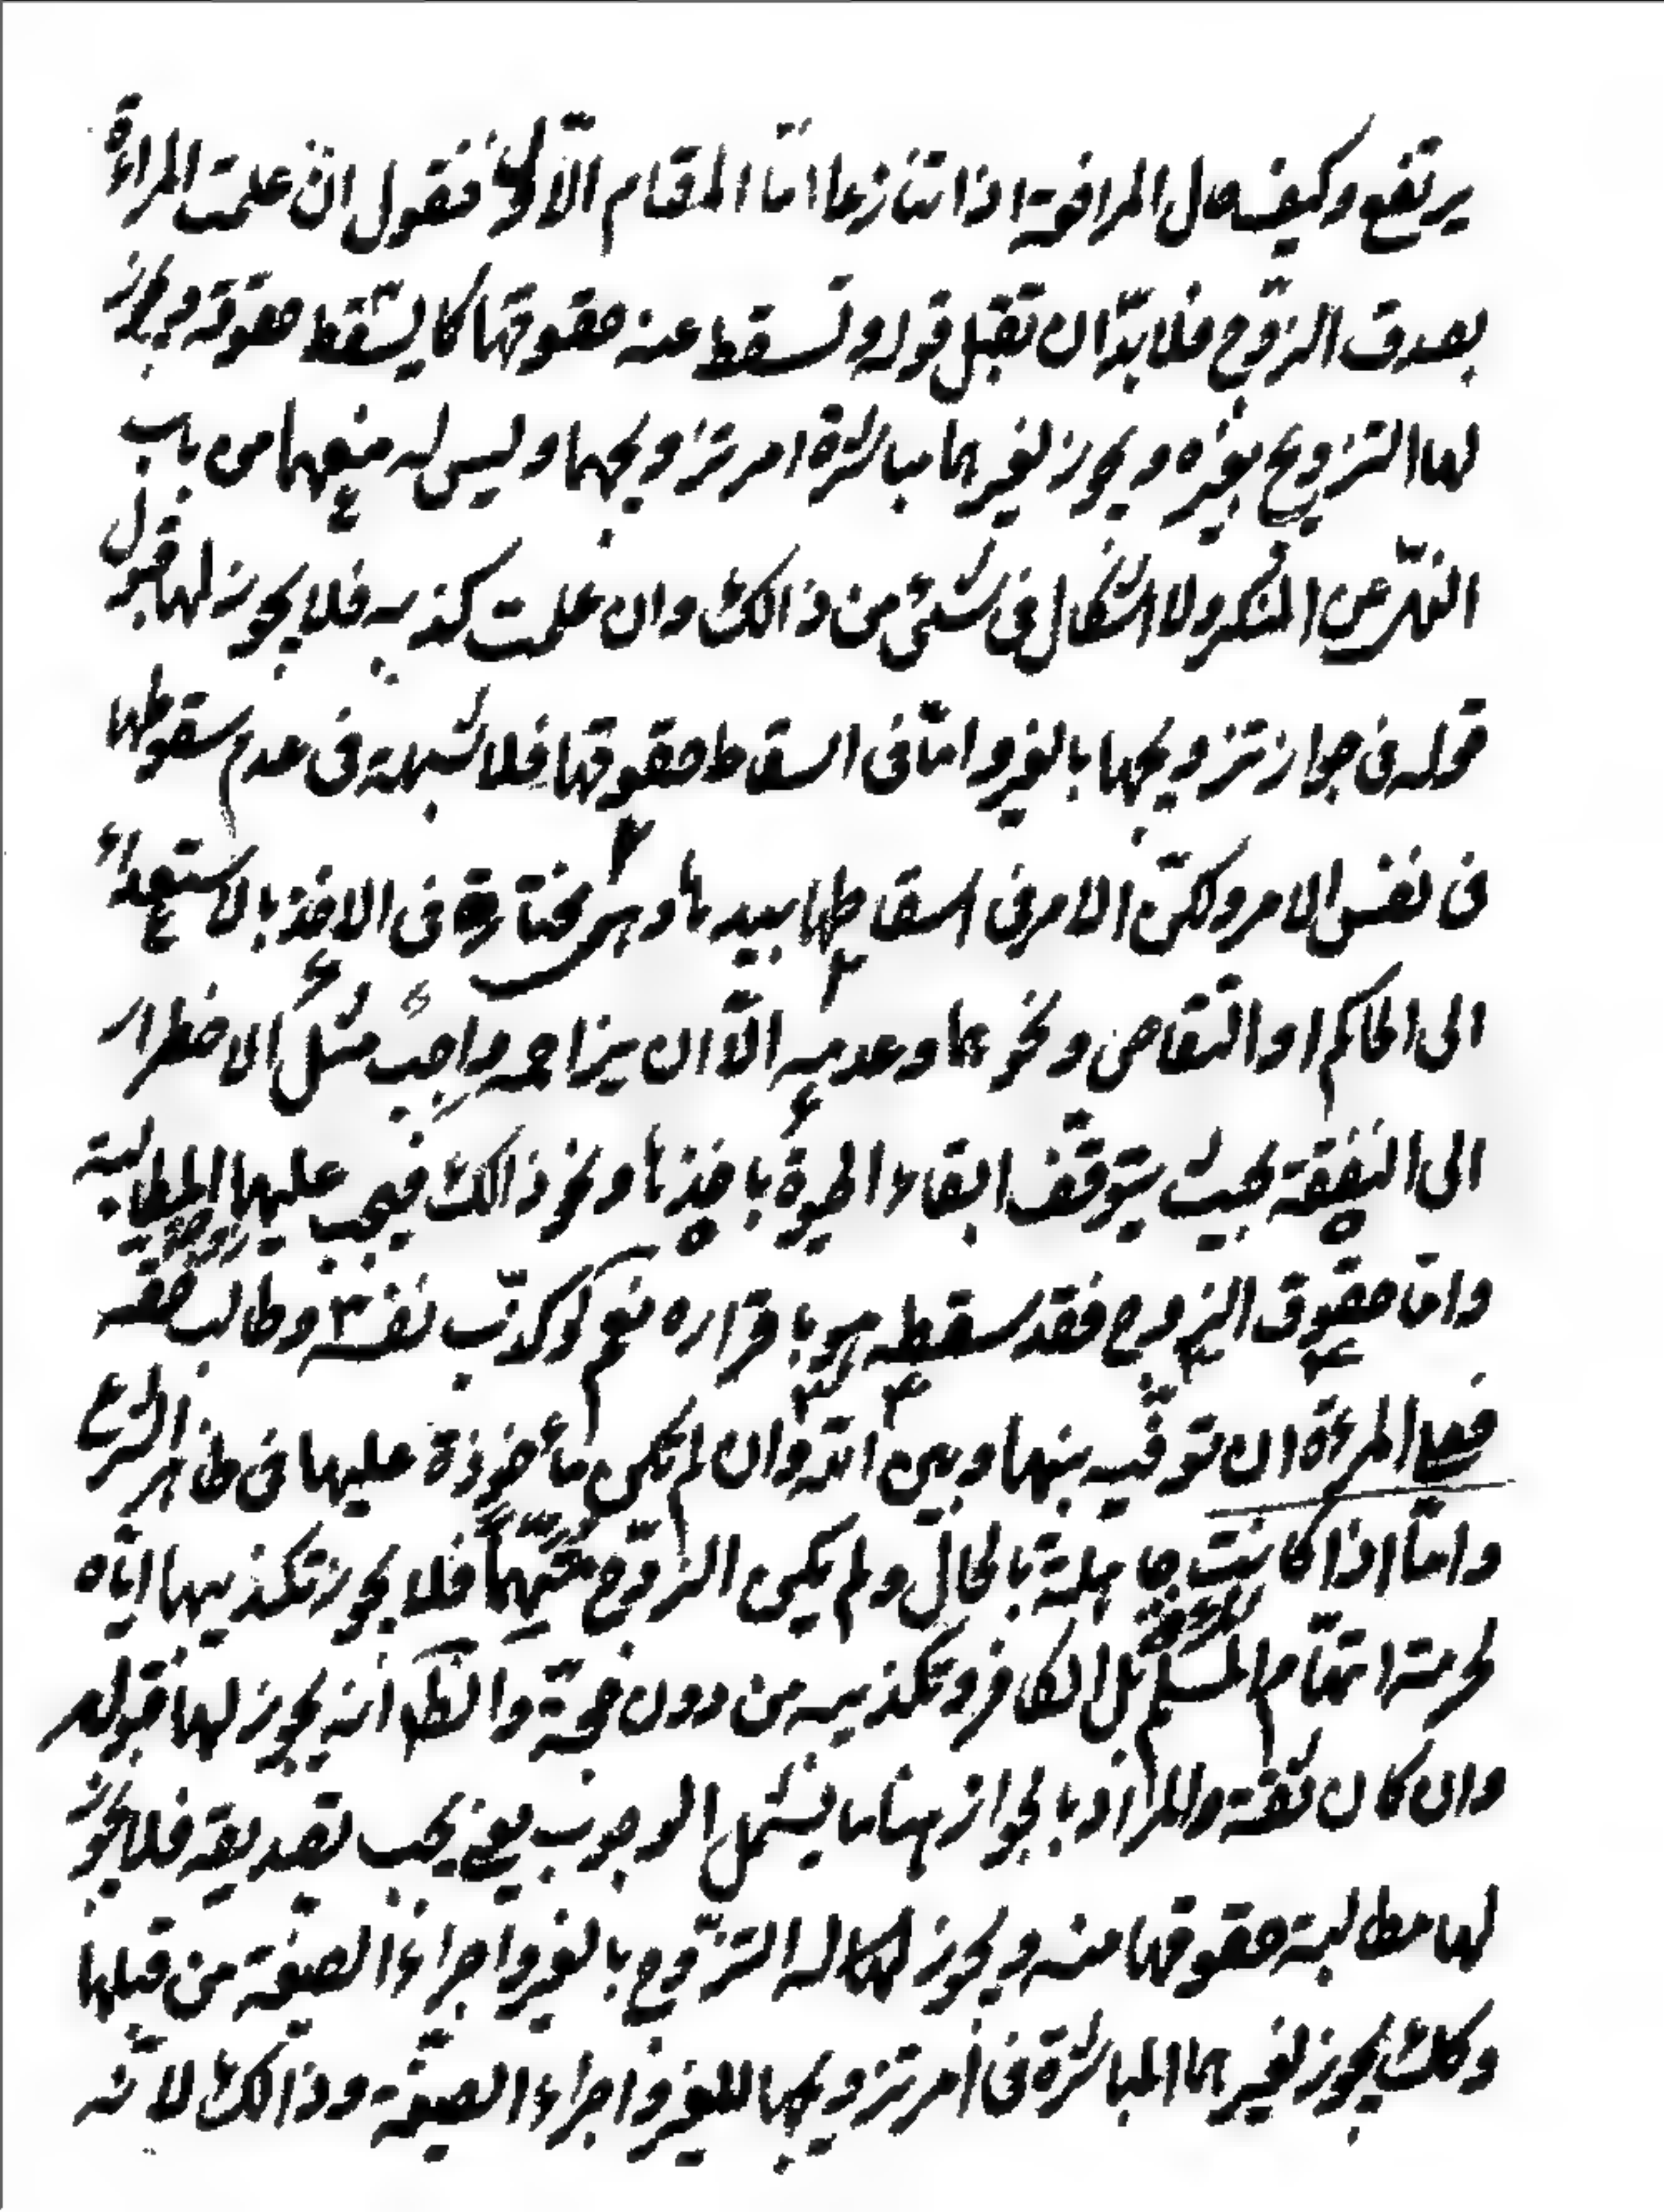 يرتفع وكيف حال المرافعة اذا تنازعا امّا المقام الاوّل فنقول ان علمت المراءة
بصدق الزّوج فلا بدّ ان تقبل قوله وتسقط عنه حقوقها كما يسقط حقوقه ويجوز
لها التزويج بغيره ويجوز لغيرها مباشرة امر تزويجها وليس له منعهما من باب
النهى عن المنكر ولا اشكال فى شئ من ذالك وان علمت كذبه فلا يجوز لها قبول
قوله فى جواز تزويجها بالغير وامّا فى اسقاط حقوقها فلا شبهة فى عدم سقوطها
فى نفس الامر ولكنّ الامر فى اسقاطها بيدها وهى مختارة فى الاخذ بالاستعداء
الى الحاكم او التقاص ونحوهما وعدمه الّا ان يزاحمه واجب مثل الاضطرار
الى النفقة بحيث يتوقّف ابقاء الحيوة باخذها ونحو ذالك فيجب عليها المطالبة
وامّا حقوق الزوج فقد سقط هو باقراره نعم لو كذّب نفسه وطالب حقّه
فعلى المرءة ان توفّيه بينها وبين الله وان لم تكن مأخوذة عليها فى ظاهر الشرع
وامّا اذا كانت جاهلة بالحال ولم يكن الزّوج متّهماً فلا يجوز تكذيبها ايّاه
لحرمة اتهام المسلم بل الكافر وتكذيبه من دون حجّة والظ انه يجوز لها قبوله
وان كان ثقة والمراد بالجواز هنا ما يشمل الوجوب يعنى يجب تصديقه فلا يجوز
لها مطالبة حقوقها منه ويجوز لها التزّوج بالغير واجراء الصيغة من قبلها
وكك يجوز لغيرها المباشرة فى امر تزويجها للغير واجراء الصيغة وذالك لانّه